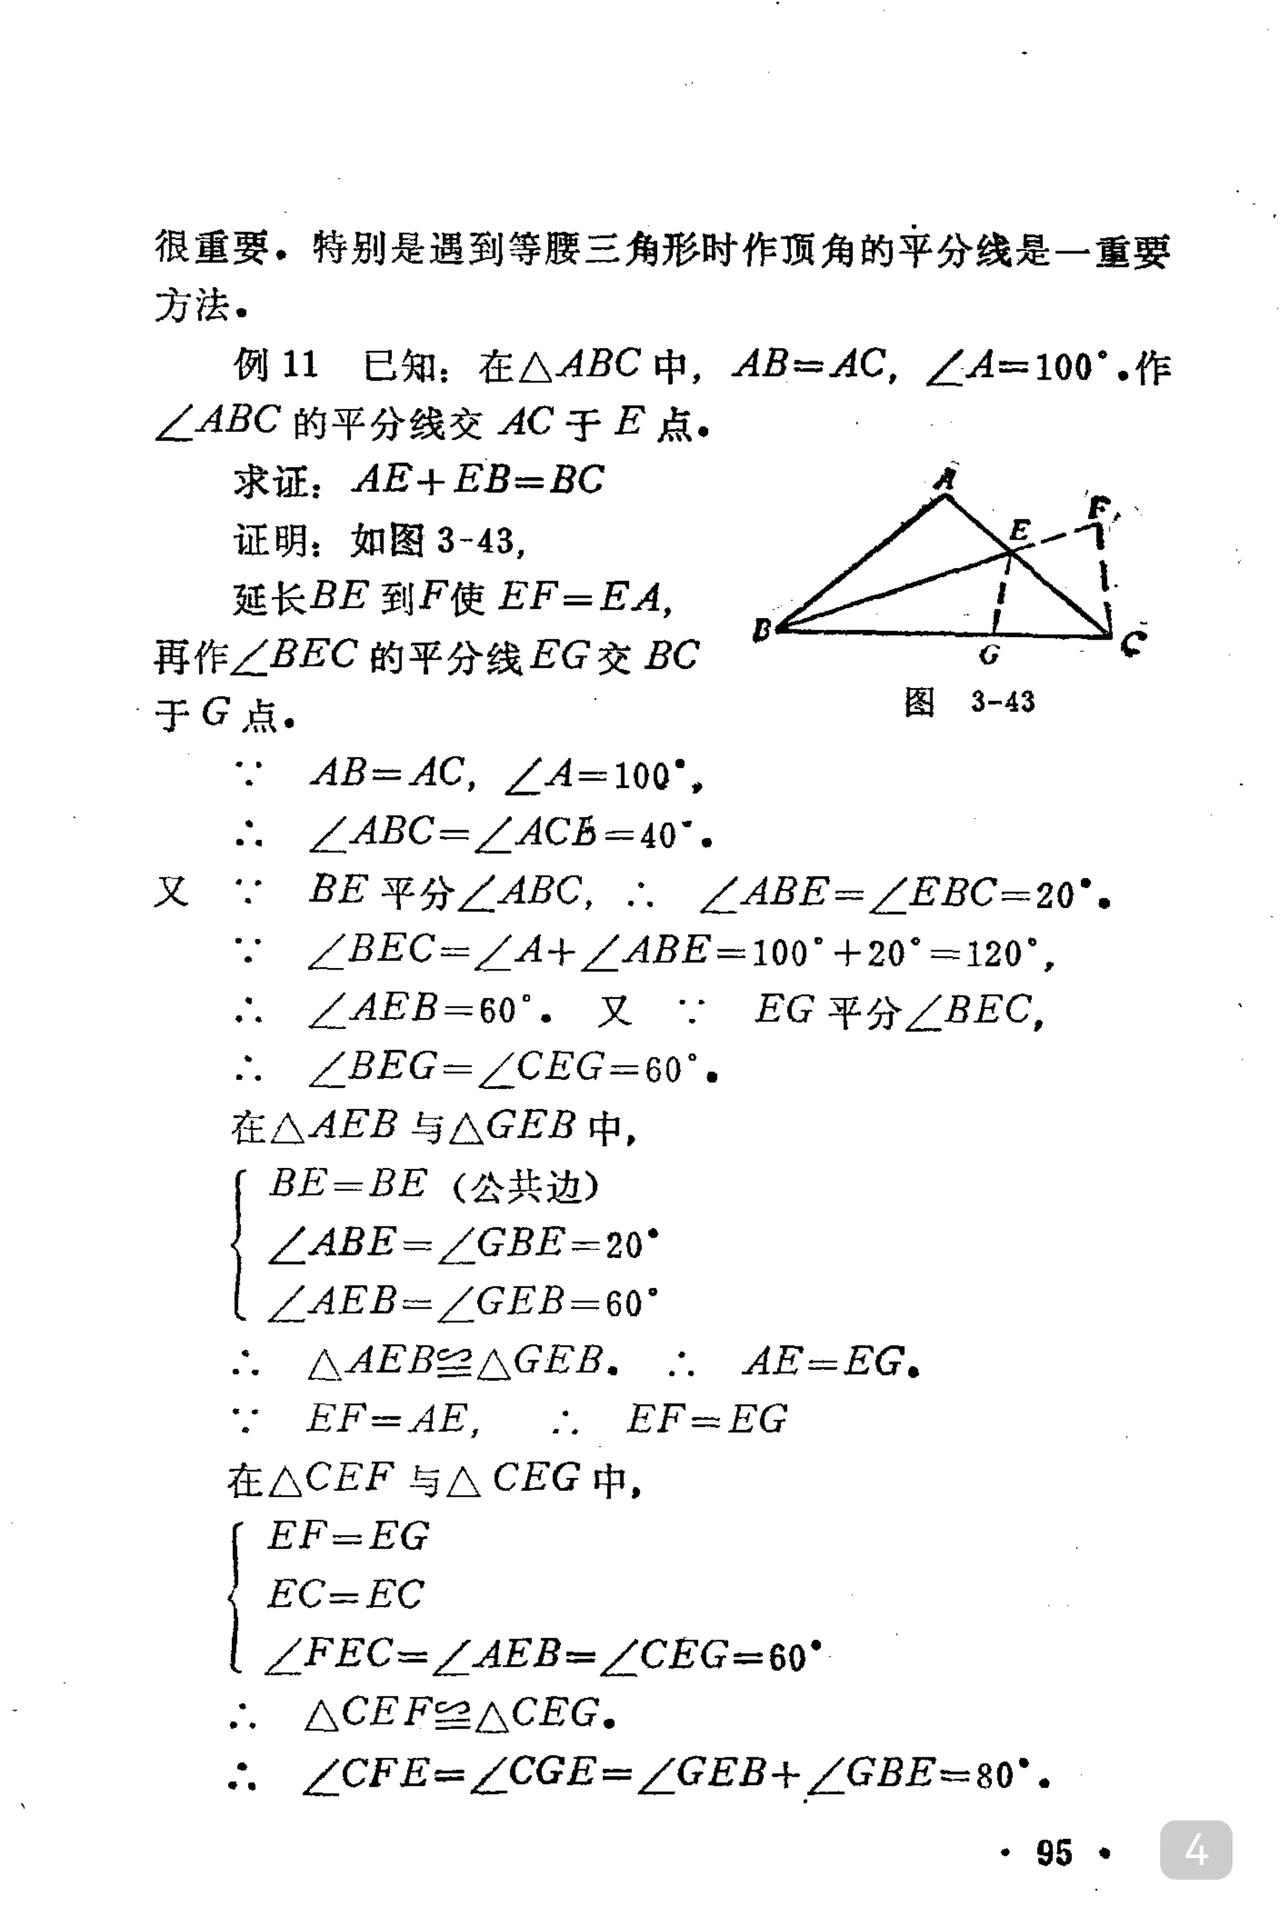 很重要。特别是遇到等腰三角形时作顶角的平分线是一重要
方法。
例 11　已知：在△ABC 中，AB=AC，∠A=100°.作
∠ABC 的平分线交 AC 于 E 点。
求证：AE+EB=BC
证明：如图 3-43,
延长BE 到F使 EF=EA,
再作∠BEC 的平分线EG交 BC
于 G 点。
A
F
E
B
G
C
图　3-43
∵　AB=AC，∠A=100°，
∴　∠ABC=∠ACB=40°。
又　∵　BE 平分∠ABC，∴　∠ABE=∠EBC=20°。
∵　∠BEC=∠A+∠ABE=100°+20°=120°，
∴　∠AEB=60°。又　∵　EG 平分∠BEC,
∴　∠BEG=∠CEG=60°。
在△AEB 与△GEB 中，
BE=BE（公共边）
∠ABE=∠GBE=20°
∠AEB=∠GEB=60°
∴　△AEB≌△GEB。∴　AE=EG。
∵　EF=AE，∴　EF=EG
在△CEF 与△CEG 中，
EF=EG
EC=EC
∠FEC=∠AEB=∠CEG=60°
∴　△CEF≌△CEG。
∴　∠CFE=∠CGE=∠GEB+∠GBE=80°。
· 95 ·
4